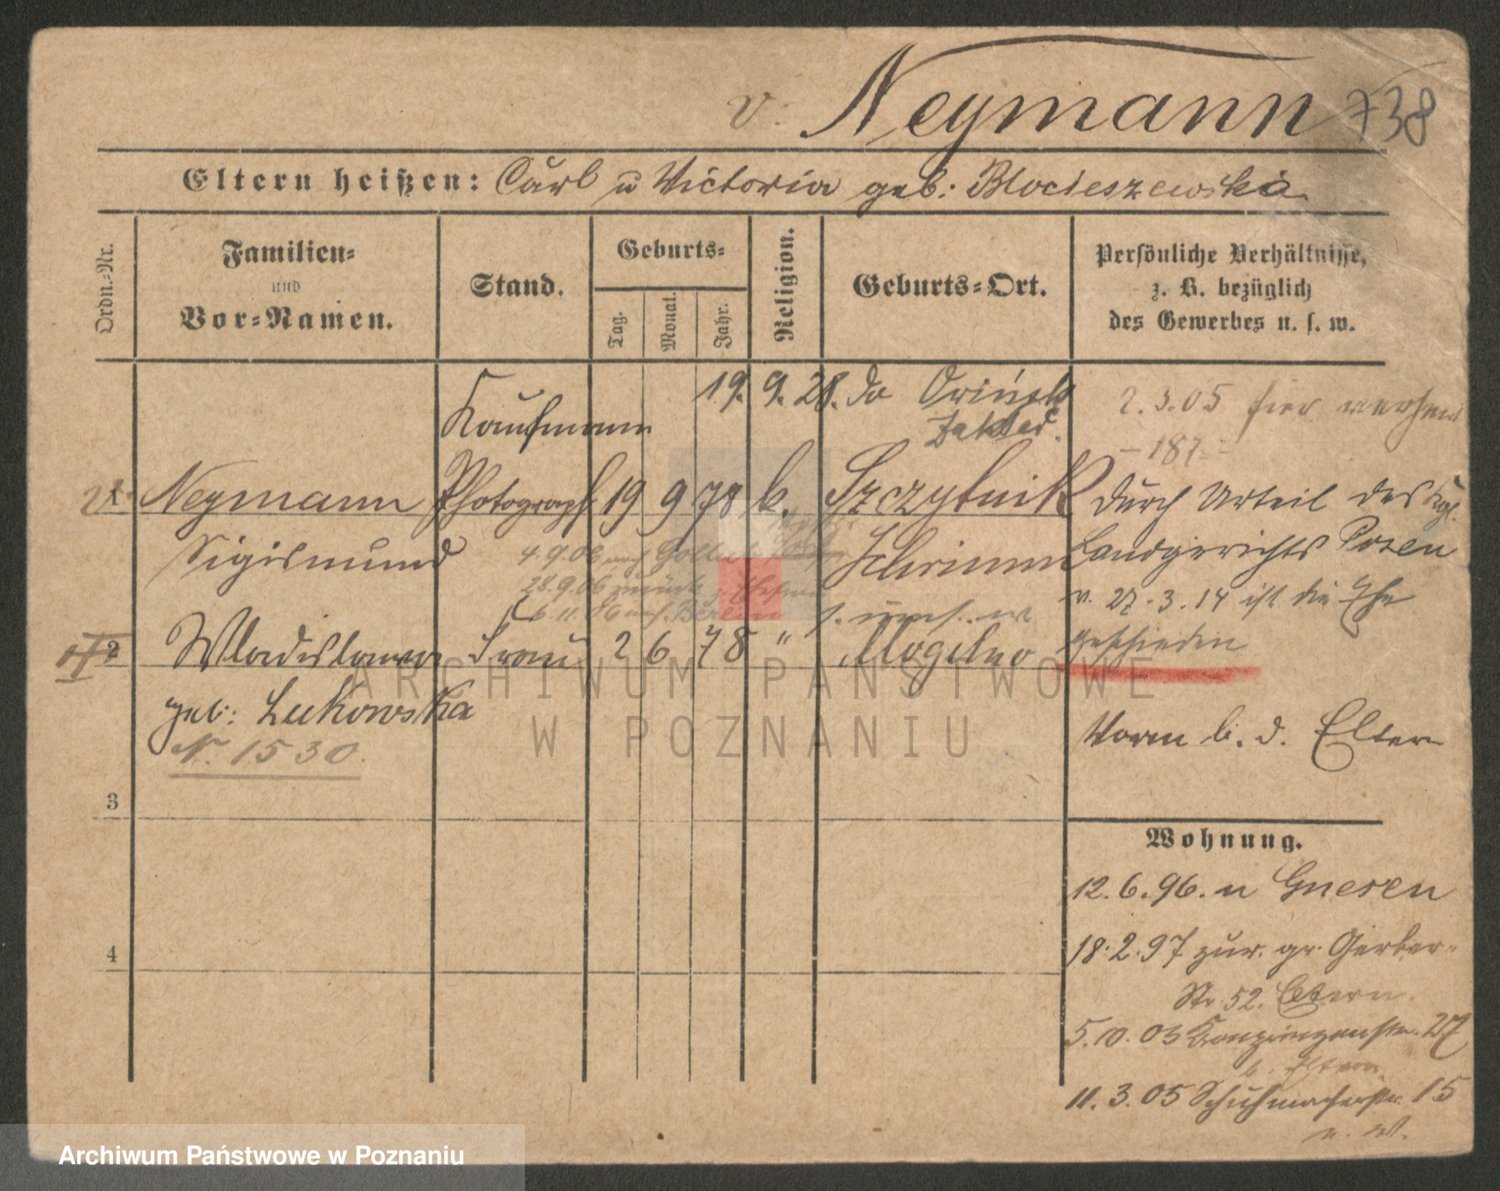 v. Neymann 738
Eltern heißen: Carl u Victoria geb: Blocieszewska
Ordn.-Nr.
Familien-
und
Vor-Namen.
Stand.
Geburts-
Tag.
Monat.
Jahr.
Religion.
Geburts-Ort.
Persönliche Verhältnisse,
z. B. bezüglich
des Gewerbes u. s. w.
Kaufmann
19. 9. 28.
2.3.05 hier
Neymann Photograph 19 9 78 k. Szczytnik
Sigismund
Schrimm
4.9.06
28.9.06 zurück
6.11.06 nach Berlin
Durch Urteil des Kgl.
Landgerichts Posen
v. 27.3.14 ist die Ehe
geschieden
2 Wladislawa Frau 2 6 78 " Mogilno
geb: Lukowska
N. 1530.
Vorm b. d. Eltern
3
4
Wohnung.
12.6.96. n Gnesen
18.2.97 zur. gr. Gerber-
Str 52. Eltern.
5.10.03 27
b. Eltern
11.3.05 Schuhmacherstr. 15
ARCHIWUM PAŃSTWOWE
W POZNANIU
Archiwum Państwowe w Poznaniu